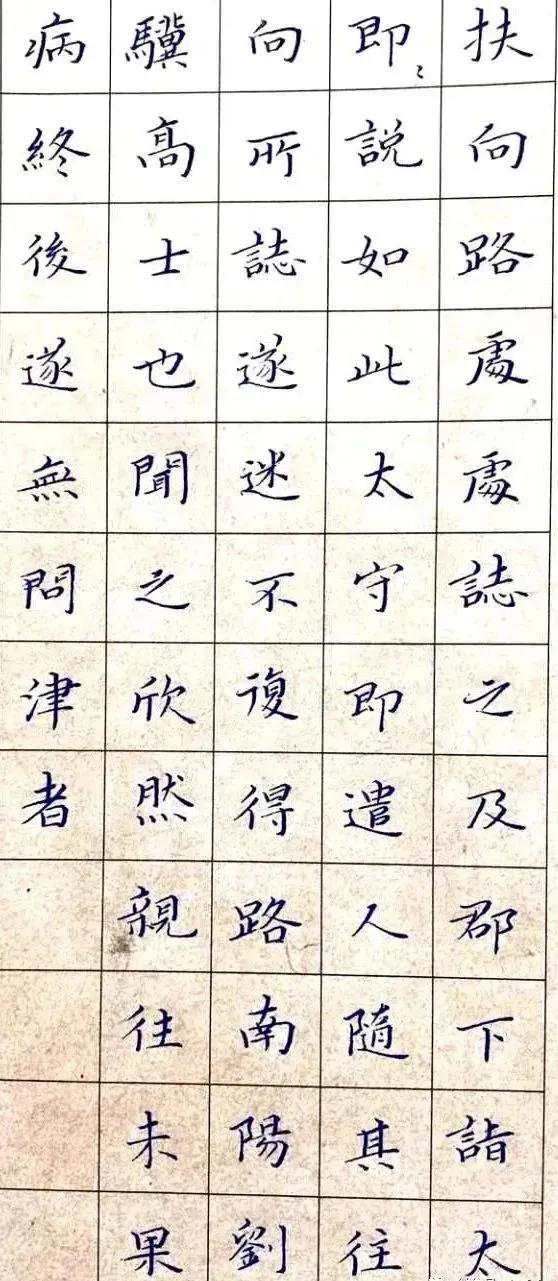 扶向路處處誌之及郡下詣太
即說如此太守即遣人隨其往
向所誌遂迷不復得路南陽劉
驥高士也聞之欣然親往未果
病終後遂無問津者